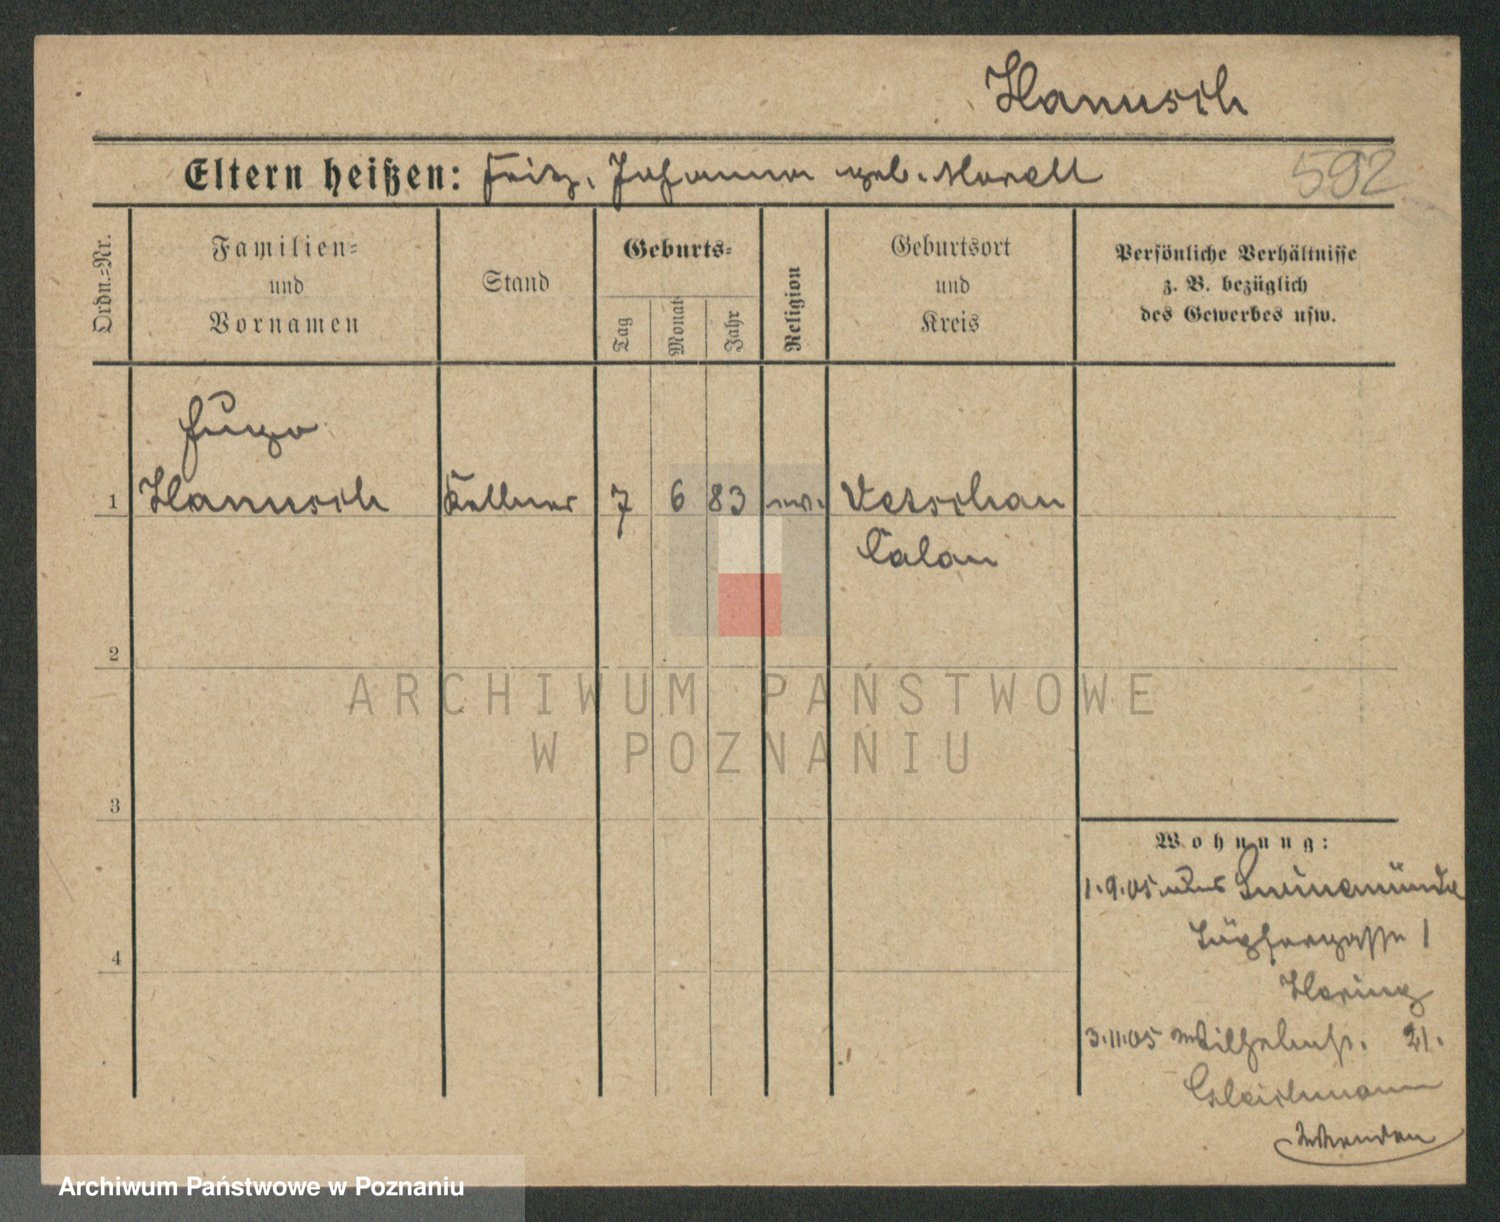 Hanusch
Eltern heißen: Fritz, Johanna geb. Morell
592
Ordn.-Nr.
Familien-
und
Vornamen
Stand
Geburts-
Tag
Monat
Jahr
Religion
Geburtsort
und
Kreis
Persönliche Verhältnisse
z. B. bezüglich
des Gewerbes usw.
Hugo
1 Hanusch Kellner 7 6 83 ev. Vetschau
Calau
2
ARCHIWUM PAŃSTWOWE
W POZNANIU
3
Wohnung:
1.9.05 aus Swinemünde
Töpfergasse 1
Hering
4
3.11.05 Wilhelmstr. 21.
Gleichmann
Archiwum Państwowe w Poznaniu